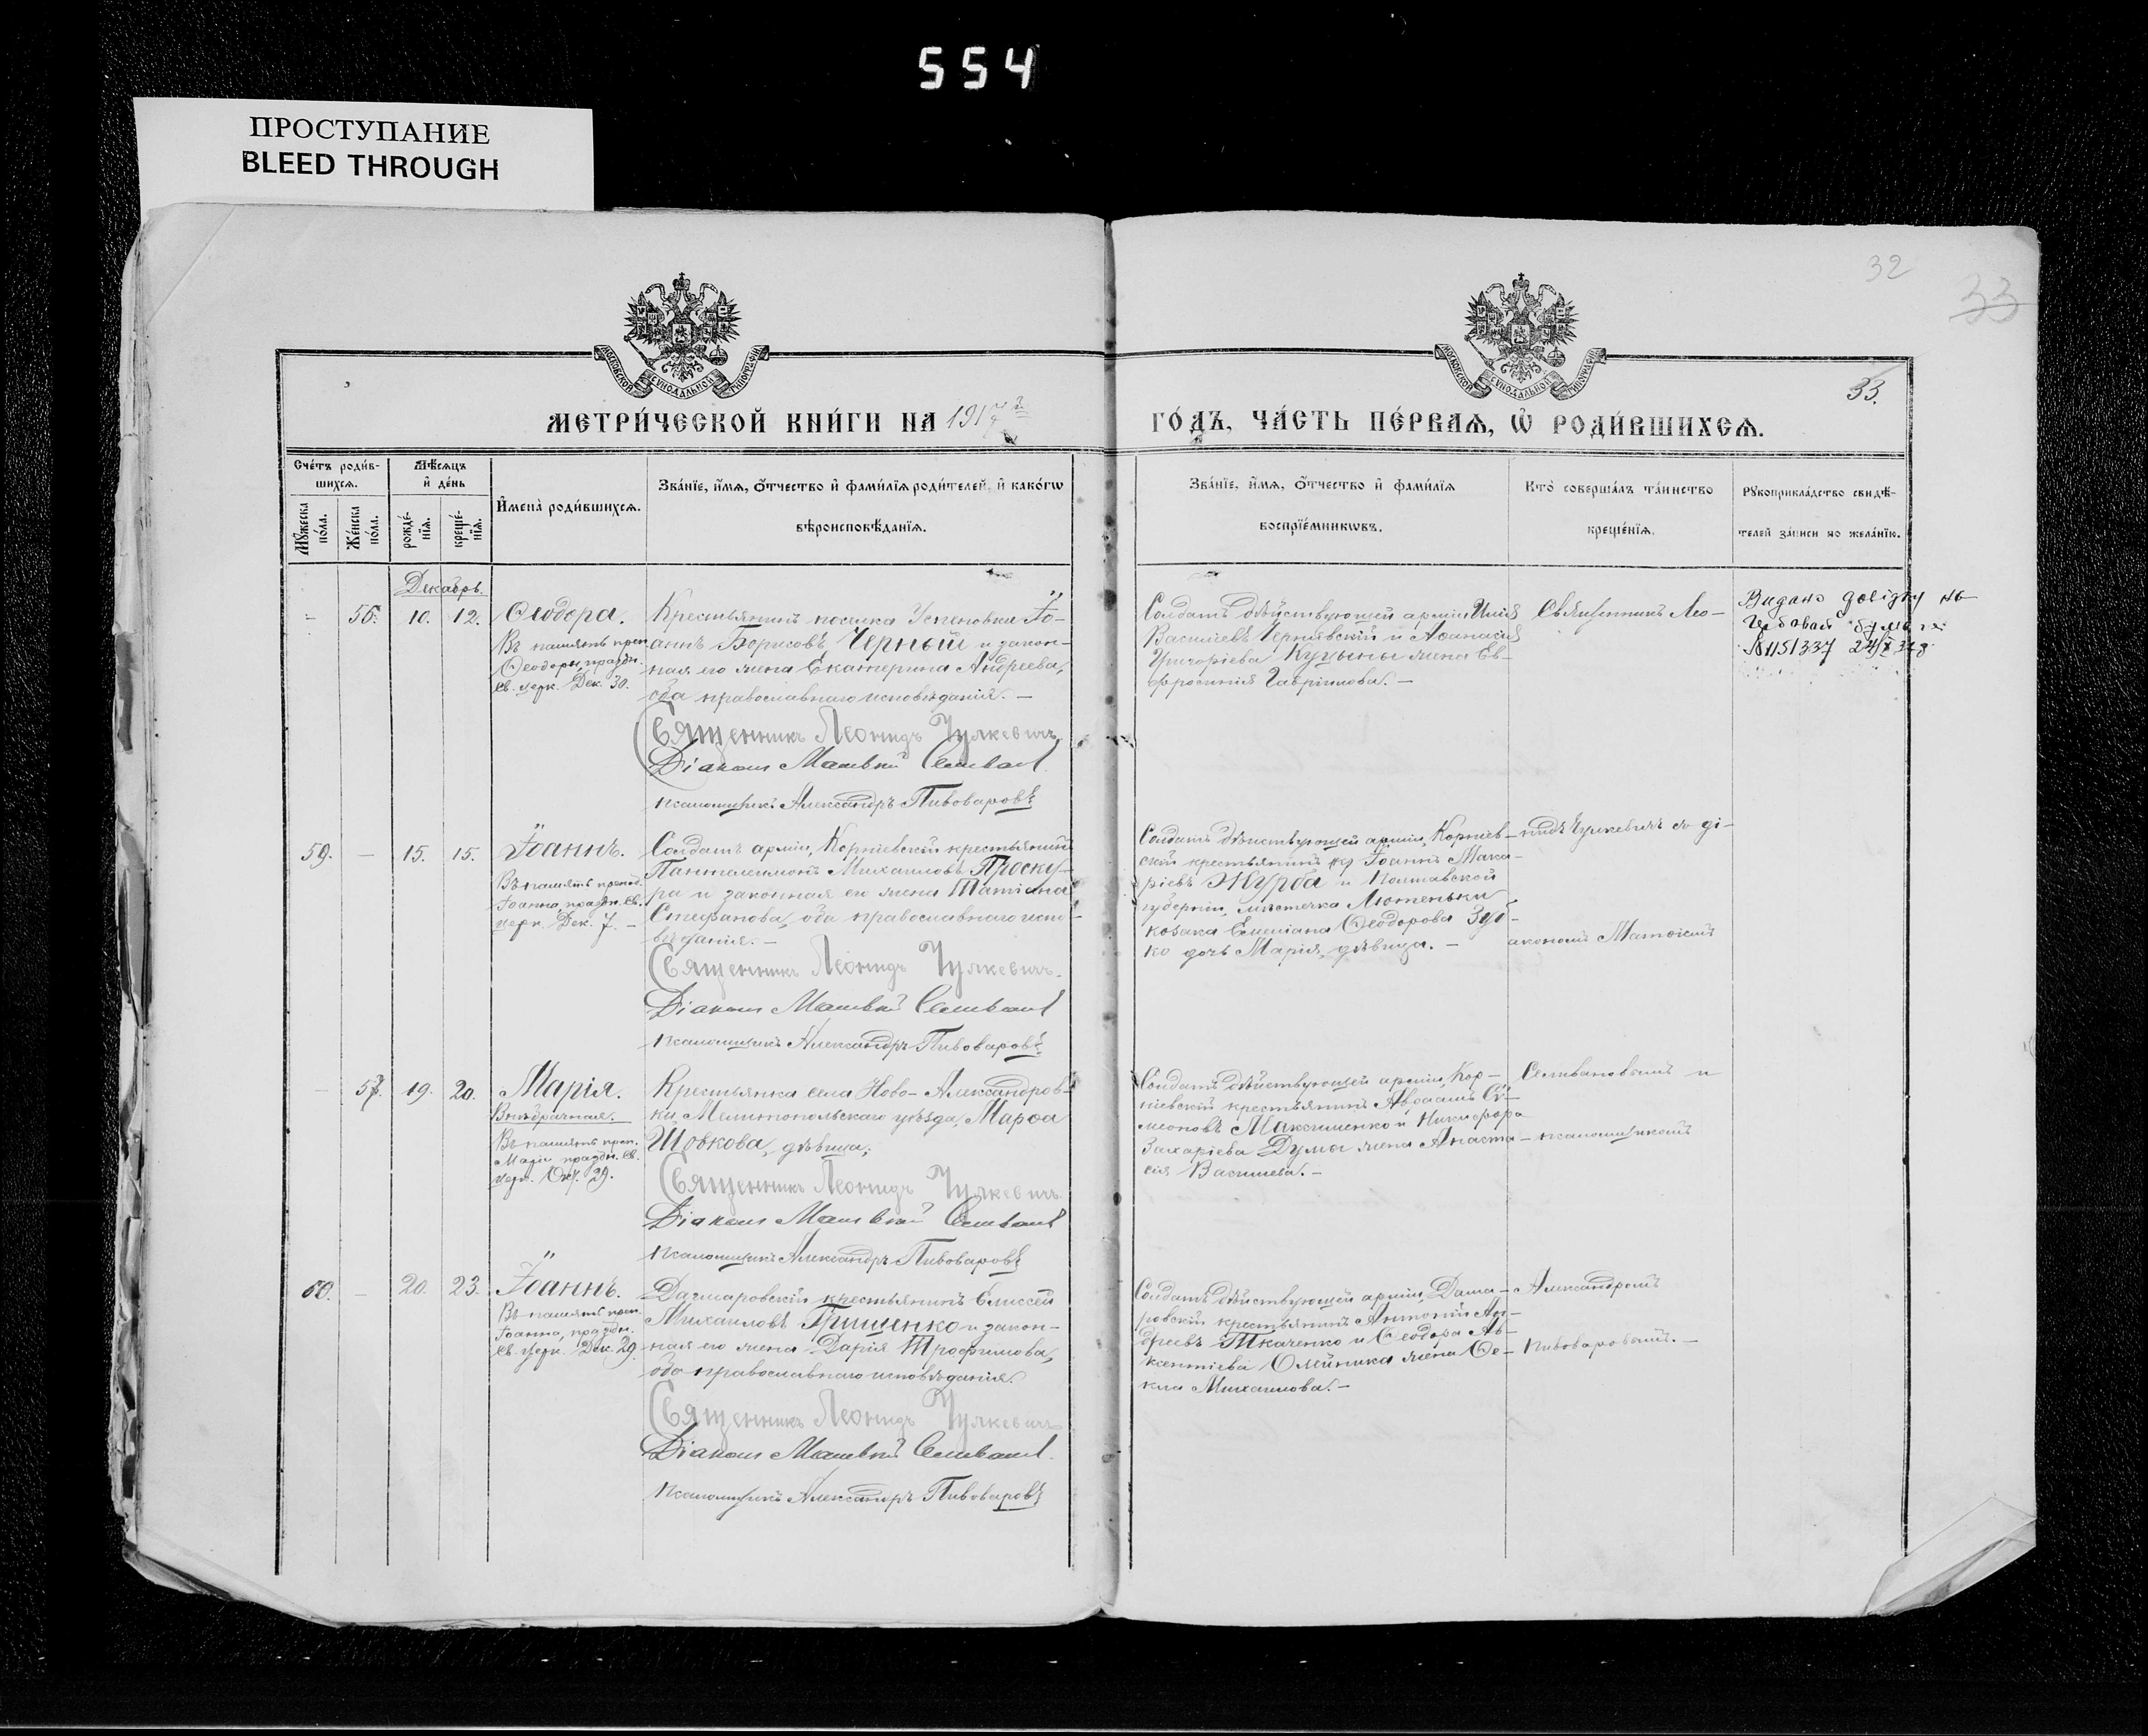 554
ПРОСТУПАНИЕ
BLEED THROUGH
32
33
33.
МОСКОВСКОЙ СѴНОДАЛЬНОЙ ТИПОГРАФІИ
МОСКОВСКОЙ СѴНОДАЛЬНОЙ ТИПОГРАФІИ
МЕТРИ́ЧЕСКОЙ КНИ́ГИ НА 1917й
ГО́ДЪ, ЧА́СТЬ ПЕ́РВАЯ, Ѡ҆ РОДИ́ВШИХСЯ.
Сче́тъ роди́в-
шихся.
Мѣ́сяцъ
и҆ де́нь
И҆мена̀ роди́вшихся.
Зва́нїе, и҆́мя, ѻ҆́тчество и҆ фами́лїя роди́телей, и҆ како́гѡ
вѣроисповѣ́данїя.
Мꙋ́жеска по́ла.
Же́нска по́ла.
рожде́-нїя.
креще́-нїя.
Зва́нїе, и҆́мя, ѻ҆́тчество и҆ фами́лїя
воспрїе́мникѡвъ.
Кто̀ соверша́лъ та́инство
креще́нїя.
Рꙋкоприкла́дство свидѣ́-
телей за́писи по жела́нїю.
Декабрь.
- 56. 10. 12. Ѳеодора.
Въ память преп.
Ѳеодоры, праздн.
св. церк. Дек. 30.
Крестьянинъ поселка Успеновки Іо-
аннъ Борисовъ Черный и закон-
ная его жена Екатерина Андреева,
оба православнаго исповѣданія. —
Священникъ Леонидъ Чулкевичъ
Діаконъ Матвѣй Селиванъ
Псаломщикъ Александръ Пивоваровъ
Солдатъ дѣйствующей арміи Илія
Василіевъ Чернявскій и Аѳанасія
Григоріева Куцына жена Ев-
фросинія Гавріилова. —
Священникъ Лео-
Видано довідку на
гербовая бумага
59. — 15. 15. Іоаннъ.
Въ память препод.
Іоанна, праздн. св.
церк. Дек. 7. —
Солдатъ арміи, Корніевскій крестьянинъ
Пантелеимонъ Михаиловъ Проску-
ра и законная его жена Татіана
Стефанова, оба православнаго испо-
вѣданія. —
Священникъ Леонидъ Чулкевичъ.
Діаконъ Матвѣй Селиванъ
Псаломщикъ Александръ Пивоваровъ
Солдатъ дѣйствующей арміи, Корніев-
скій крестьянинъ Іоаннъ Мака-
ріевъ Журба и Полтавской
губерніи, мѣстечка Лютеньки
козака Емеліана Ѳеодорова Зуб-
ко дочь Марія, дѣвица. —
нидъ Чулкевичъ съ ді-
акономъ Матѳіемъ
— 57. 19. 20. Марія.
Внѣбрачная.
Въ память преп.
Маріи праздн. св.
церк. Окт. 29.
Крестьянка села Ново-Александров-
ки, Мелитопольскаго уѣзда, Марѳа
Шовкова, дѣвица,
Священникъ Леонидъ Чулкевичъ
Діаконъ Матвѣй Селиванъ
Псаломщикъ Александръ Пивоваровъ
Солдатъ дѣйствующей арміи, Кор-
ніевскій крестьянинъ Авраамъ Си-
меоновъ Максименко и Никифора
Захаріева Думы жена Анаста-
сія Василіева. —
Селивановымъ и
псаломщикомъ
60. — 20. 23. Іоаннъ.
Въ память преп.
Іоанна, праздн.
св. церк. Дек. 29.
Дагмаровскій крестьянинъ Елиссей
Михаиловъ Грищенко и закон-
ная его жена Дарія Трофимова,
оба православнаго исповѣданія.
Священникъ Леонидъ Чулкевичъ
Діаконъ Матвѣй Селиванъ
Псаломщикъ Александръ Пивоваровъ
Солдатъ дѣйствующей арміи, Дагма-
ровскій крестьянинъ Антоній Ан-
дреевъ Ткаченко и Ѳеодора Ав-
ксентіева Олейника жена Ѳе-
кла Михаилова. —
Александромъ
Пивоваровымъ. —